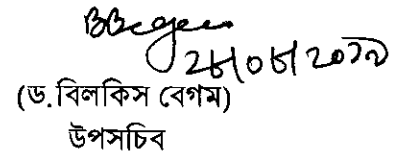 BBegum
২৮/০৮/২০১৯
(ড. বিলকিস বেগম)
উপসচিব